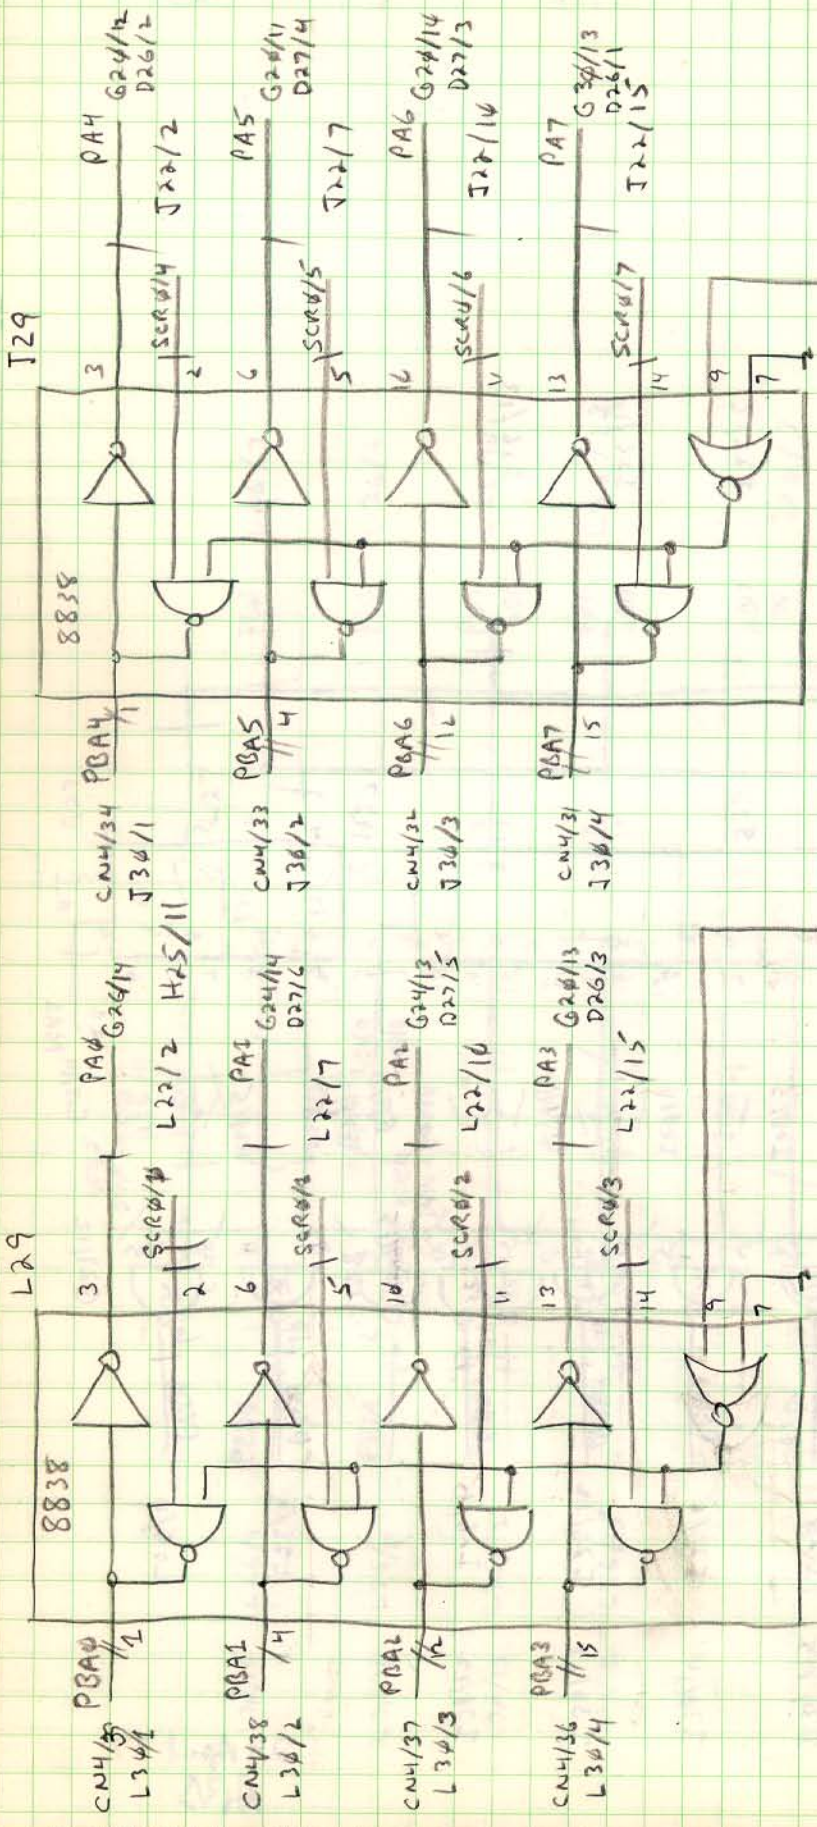 L29
8838
CN4/39
L3φ/1
PBAφ
1
3
PAφ
G26/14
2
SCRφ/φ
L22/2 H25/11
CN4/38
L3φ/2
PBA1
4
6
PA1
G24/14
D27/6
5
SCRφ/1
L22/7
CN4/37
L3φ/3
PBA2
12
1φ
PA2
G24/13
D27/5
11
SCRφ/2
L22/1φ
CN4/36
L3φ/4
PBA3
15
13
PA3
G2φ/13
D26/3
14
SCRφ/3
L22/15
9
7
J29
8838
CN4/34
J3φ/1
PBA4
1
3
PA4
G2φ/12
D26/2
2
SCRφ/4
J22/2
CN4/33
J3φ/2
PBA5
4
6
PA5
G2φ/11
D27/4
5
SCRφ/5
J22/7
CN4/32
J3φ/3
PBA6
12
1φ
PA6
G2φ/14
D27/3
11
SCRφ/6
J22/1φ
CN4/31
J3φ/4
PBA7
15
13
PA7
G3φ/13
D26/1
14
SCRφ/7
J22/15
9
7